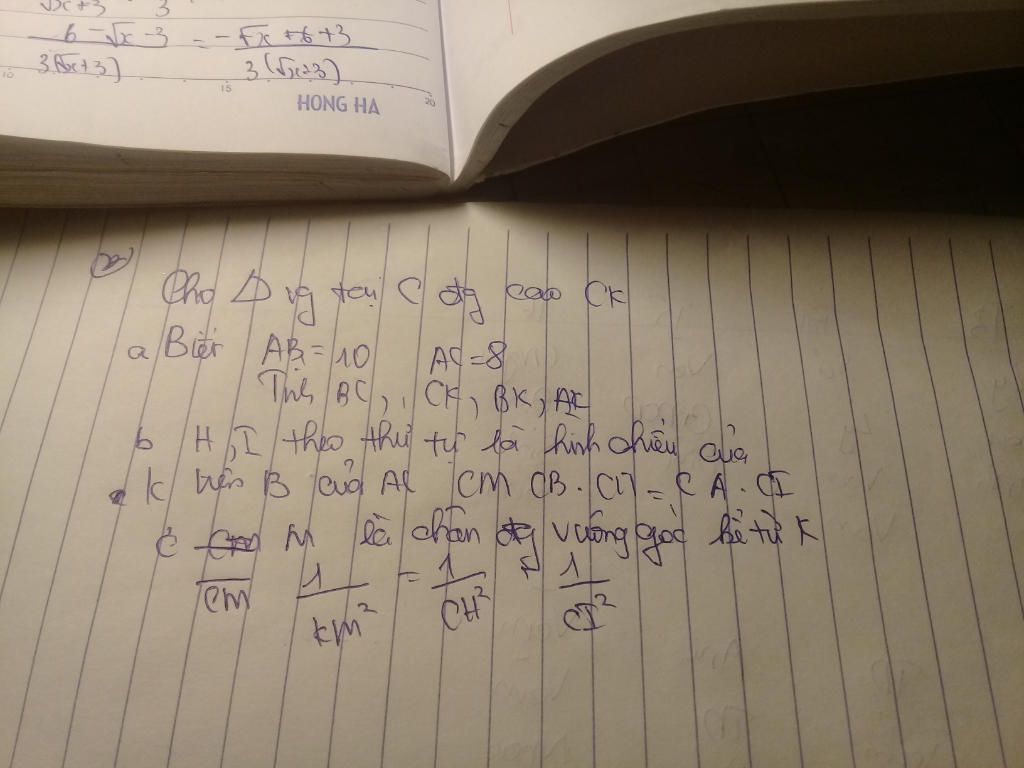 √x+3 3
6 - √x - 3 = -√x + 6 + 3
3(√x+3) 3(√x+3)
10 15 20
HONG HA
Cho Δ vg tại C đg cao CK
a Biết AB = 10 AC = 8
Tính BC, CK, BK, AK
b H, I theo thứ tự là hình chiếu của
K trên B của AC CM CB . CH = CA . CI
c M là chân đg vuông góc kẻ từ K
CM 1/KM² = 1/CH² + 1/CI²